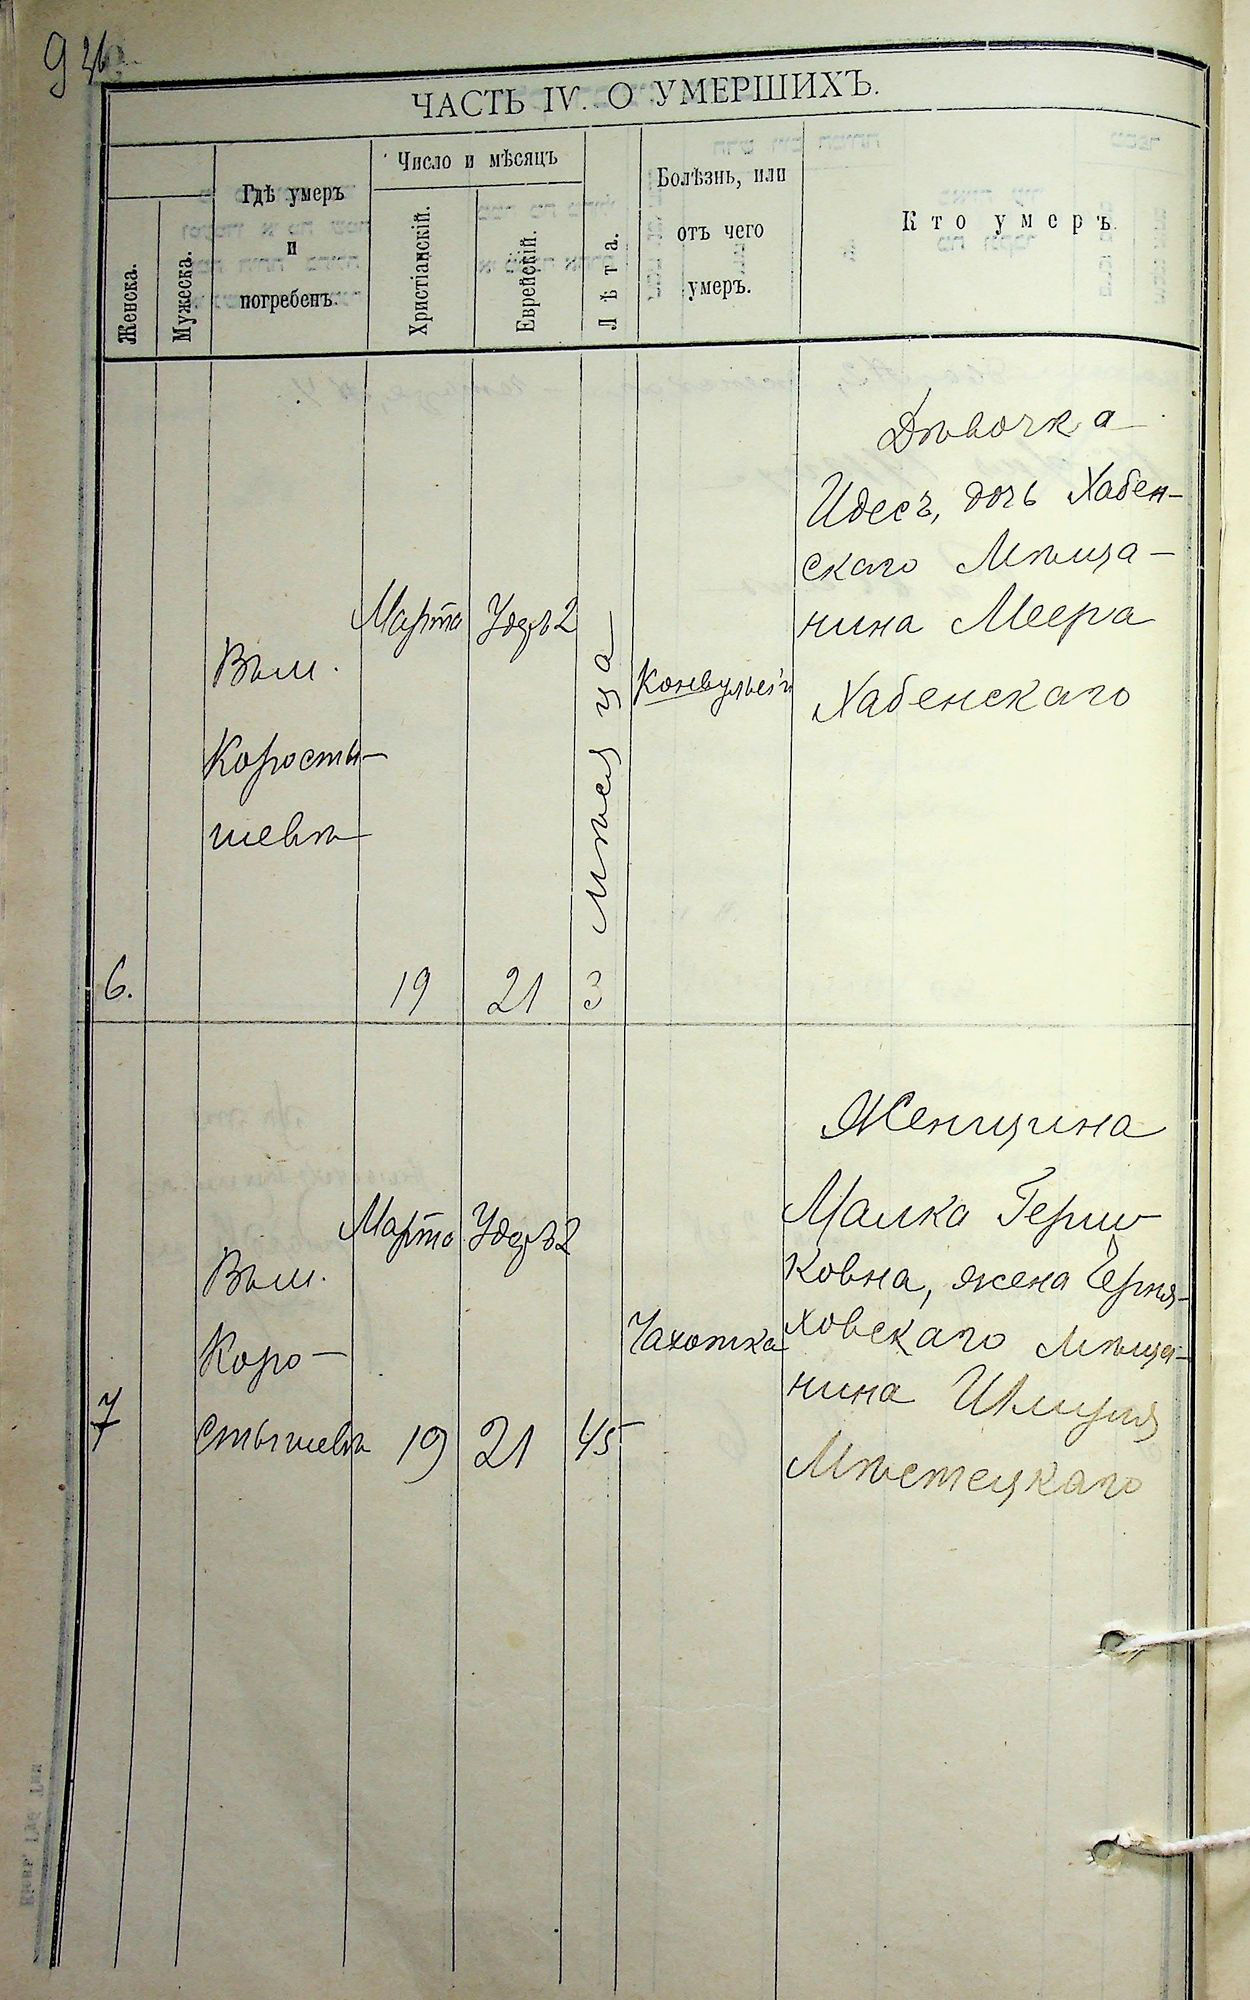 9
ЧАСТЬ IV. О УМЕРШИХЪ.
Женска.
Мужеска.
Гдѣ умеръ
и
погребенъ.
Число и мѣсяцъ
Христіанскій.
Еврейскій.
Лѣта.
Болѣзнь, или
отъ чего
умеръ.
Кто умеръ.
6.
Въ м.
Коросты-
шевѣ
Марта
19
Удеръ 2
21
3 мѣсяца
Конвульсіи
Дѣвочка
Идесъ, дочь Хабен-
скаго Мѣща-
нина Меера
Хабенскаго
7
Въ м.
Коро-
стышевѣ
Марта
19
Удеръ 2
21
45
Чахотка
Женщина
Малка Герш-
ковна, жена Черня-
ховскаго мѣща-
нина Шмуля
Мѣстецкаго